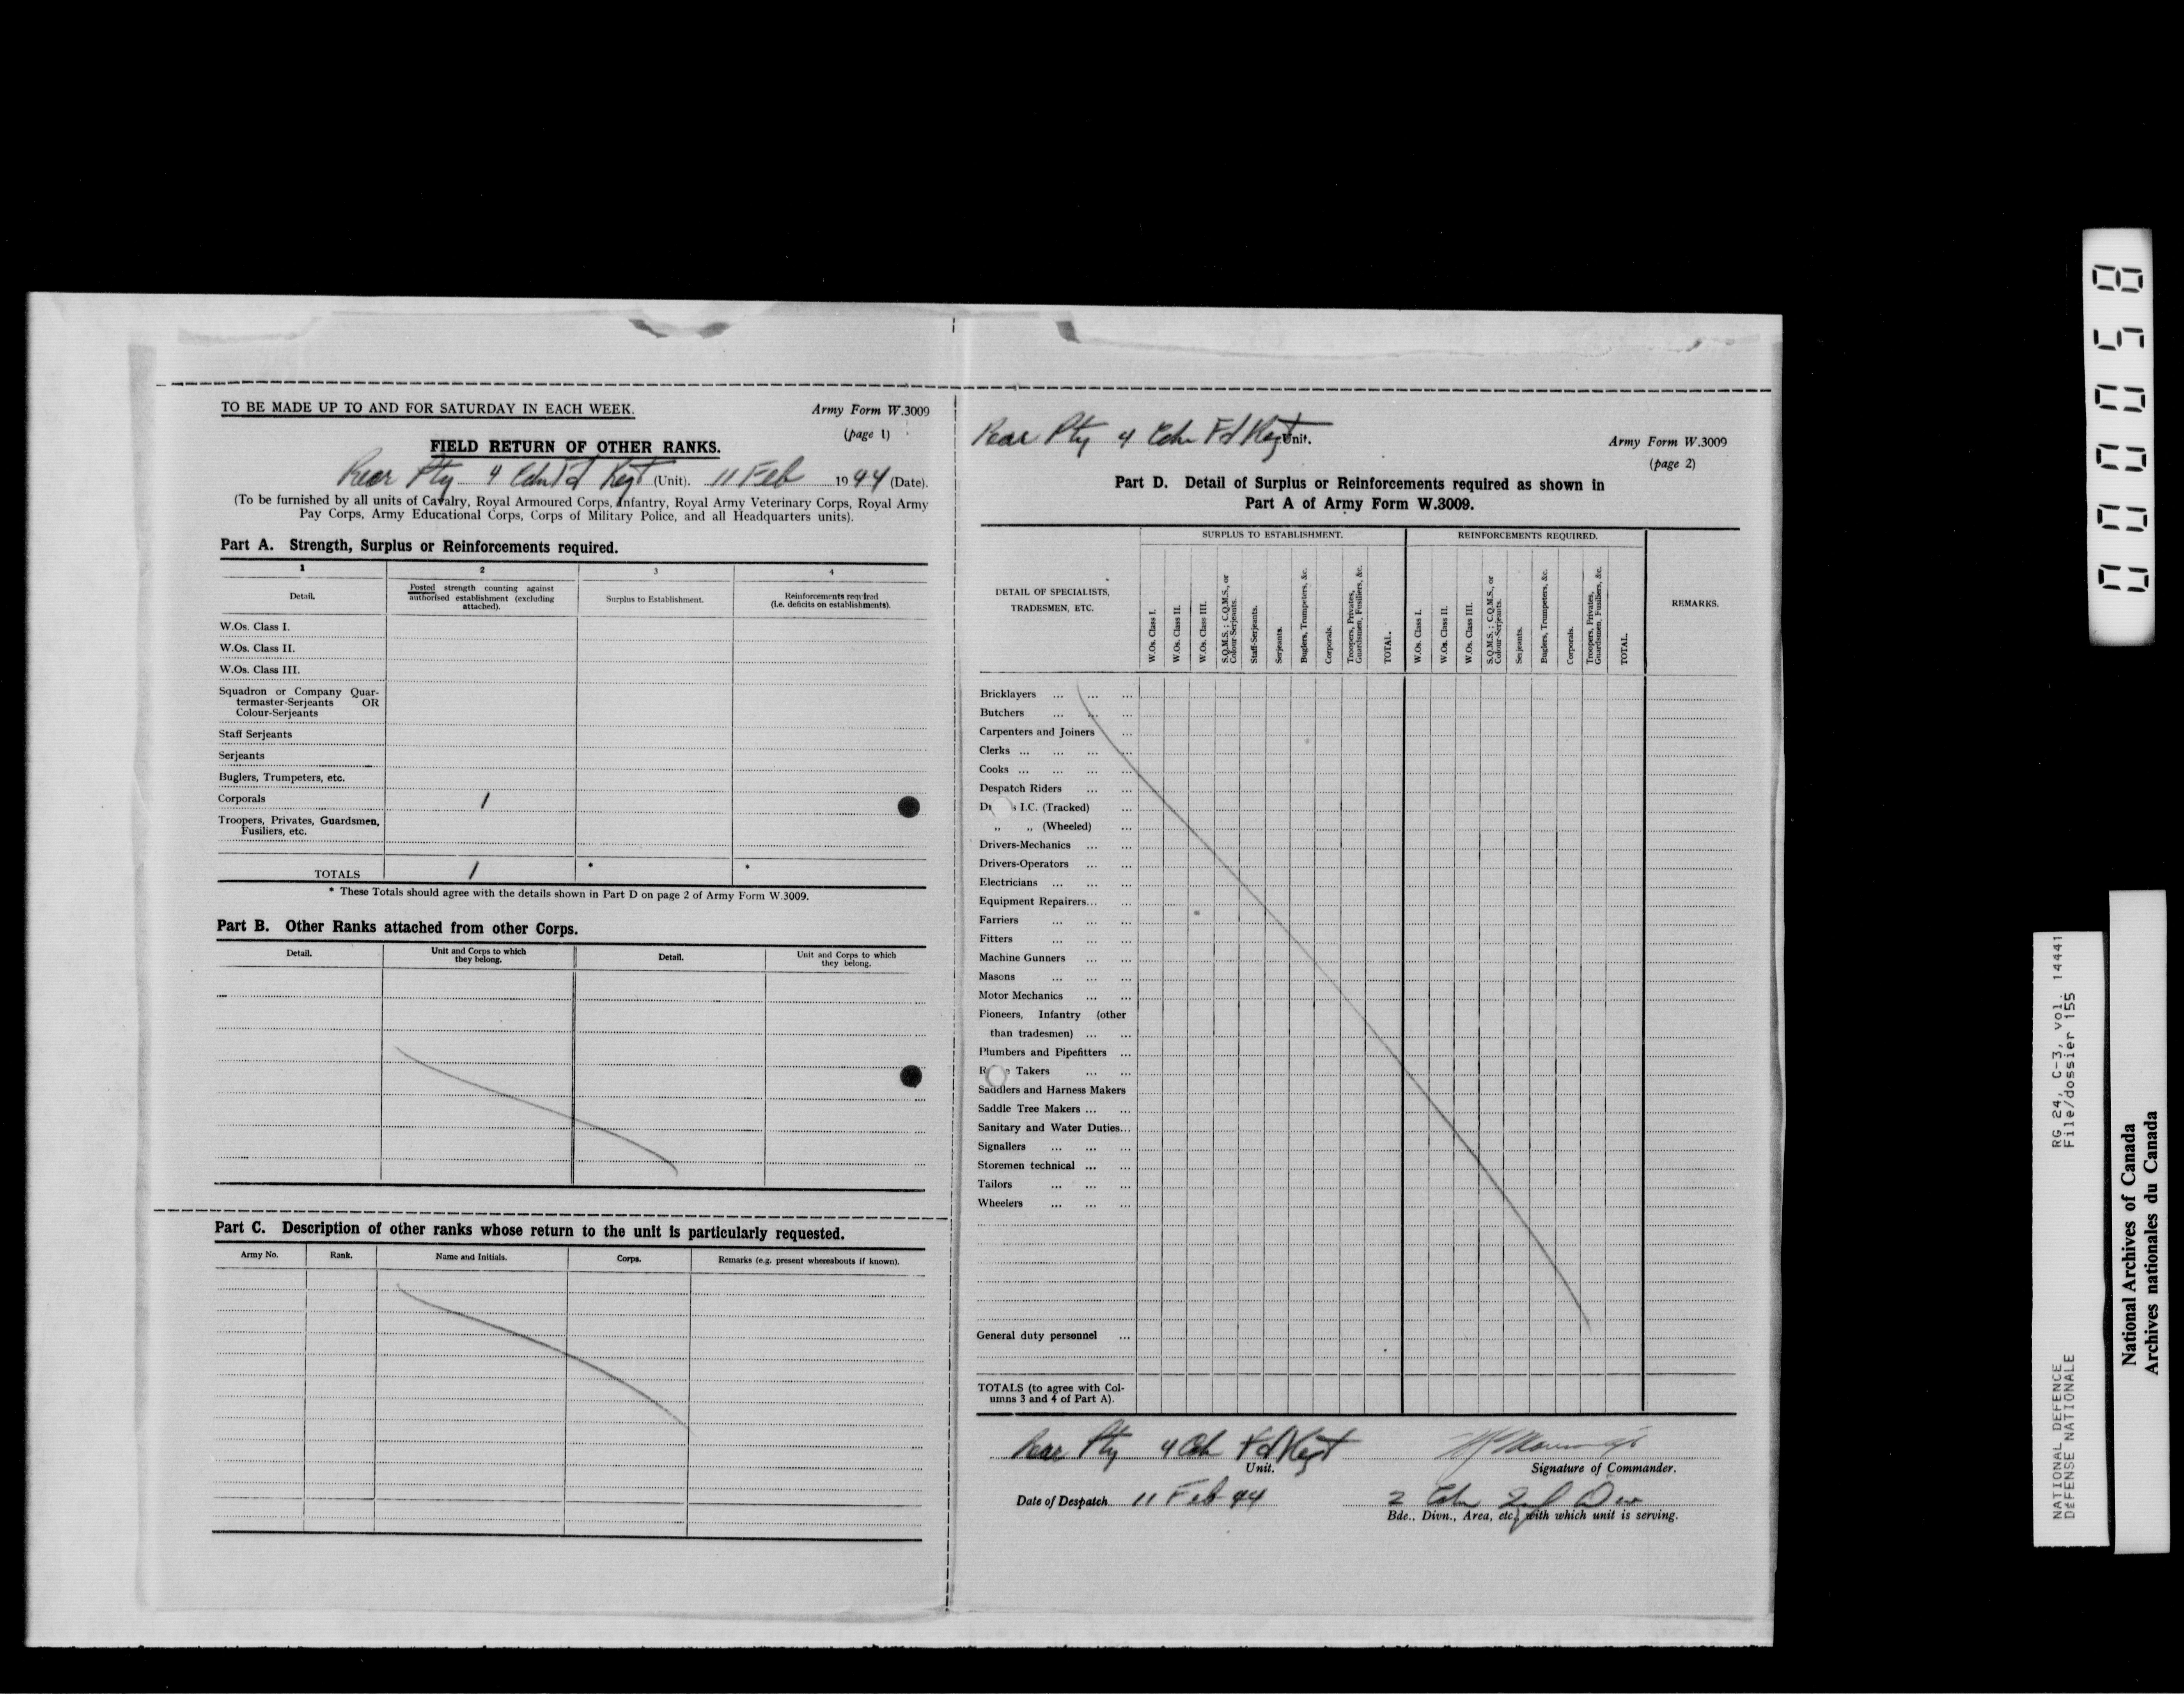 TO BE MADE UP TO AND FOR SATURDAY IN EACH WEEK.
Army Form W.3009
(page 1)
FIELD RETURN OF OTHER RANKS.
Rear Pty 4 Cdn Fd Regt (Unit). 11 Feb 1944 (Date).
(To be furnished by all units of Cavalry, Royal Armoured Corps, Infantry, Royal Army Veterinary Corps, Royal Army
Pay Corps, Army Educational Corps, Corps of Military Police, and all Headquarters units).
Part A. Strength, Surplus or Reinforcements required.
1 2 3 4
Detail.
Posted strength counting against
authorised establishment (excluding
attached).
Surplus to Establishment.
Reinforcements required
(i.e. deficits on establishments).
W.Os. Class I.
W.Os. Class II.
W.Os. Class III.
Squadron or Company Quar-
termaster-Serjeants OR
Colour-Serjeants
Staff Serjeants
Serjeants
Buglers, Trumpeters, etc.
Corporals 1
Troopers, Privates, Guardsmen,
Fusiliers, etc.
TOTALS 1 * *
* These Totals should agree with the details shown in Part D on page 2 of Army Form W.3009.
Part B. Other Ranks attached from other Corps.
Detail.
Unit and Corps to which
they belong.
Detail.
Unit and Corps to which
they belong.
Part C. Description of other ranks whose return to the unit is particularly requested.
Army No. Rank. Name and Initials. Corps. Remarks (e.g. present whereabouts if known).
Rear Pty 4 Cdn Fd Regt Unit.
Army Form W.3009
(page 2)
Part D. Detail of Surplus or Reinforcements required as shown in
Part A of Army Form W.3009.
DETAIL OF SPECIALISTS,
TRADESMEN, ETC.
SURPLUS TO ESTABLISHMENT.
W.Os. Class I.
W.Os. Class II.
W.Os. Class III.
S.Q.M.S.; C.Q.M.S., or
Colour-Serjeants.
Staff-Serjeants.
Serjeants.
Buglers, Trumpeters, &c.
Corporals.
Troopers, Privates,
Guardsmen, Fusiliers, &c.
TOTAL.
REINFORCEMENTS REQUIRED.
W.Os. Class I.
W.Os. Class II.
W.Os. Class III.
S.Q.M.S.; C.Q.M.S., or
Colour-Serjeants.
Serjeants.
Buglers, Trumpeters, &c.
Corporals.
Troopers, Privates,
Guardsmen, Fusiliers, &c.
TOTAL.
REMARKS.
Bricklayers ... ... ...
Butchers ... ... ...
Carpenters and Joiners ...
Clerks ... ... ... ...
Cooks ... ... ... ...
Despatch Riders ... ...
I.C. (Tracked) ...
,, ,, (Wheeled) ...
Drivers-Mechanics ... ...
Drivers-Operators ... ...
Electricians ... ... ...
Equipment Repairers... ...
Farriers ... ... ...
Fitters ... ... ...
Machine Gunners ... ...
Masons ... ... ...
Motor Mechanics ... ...
Pioneers, Infantry (other
than tradesmen) ... ...
Plumbers and Pipefitters ...
Takers ... ...
Saddlers and Harness Makers
Saddle Tree Makers ... ...
Sanitary and Water Duties...
Signallers ... ... ...
Storemen technical ... ...
Tailors ... ... ...
Wheelers ... ... ...
General duty personnel ...
TOTALS (to agree with Col-
umns 3 and 4 of Part A).
Rear Pty 4 Cdn Fd Regt
Unit.
Signature of Commander.
Date of Despatch 11 Feb 44
2 Cdn Inf Div
Bde., Divn., Area, etc., with which unit is serving.
000058
NATIONAL DEFENCE RG 24, C-3, vol. 14441
DEFENSE NATIONALE File/dossier 155
National Archives of Canada
Archives nationales du Canada